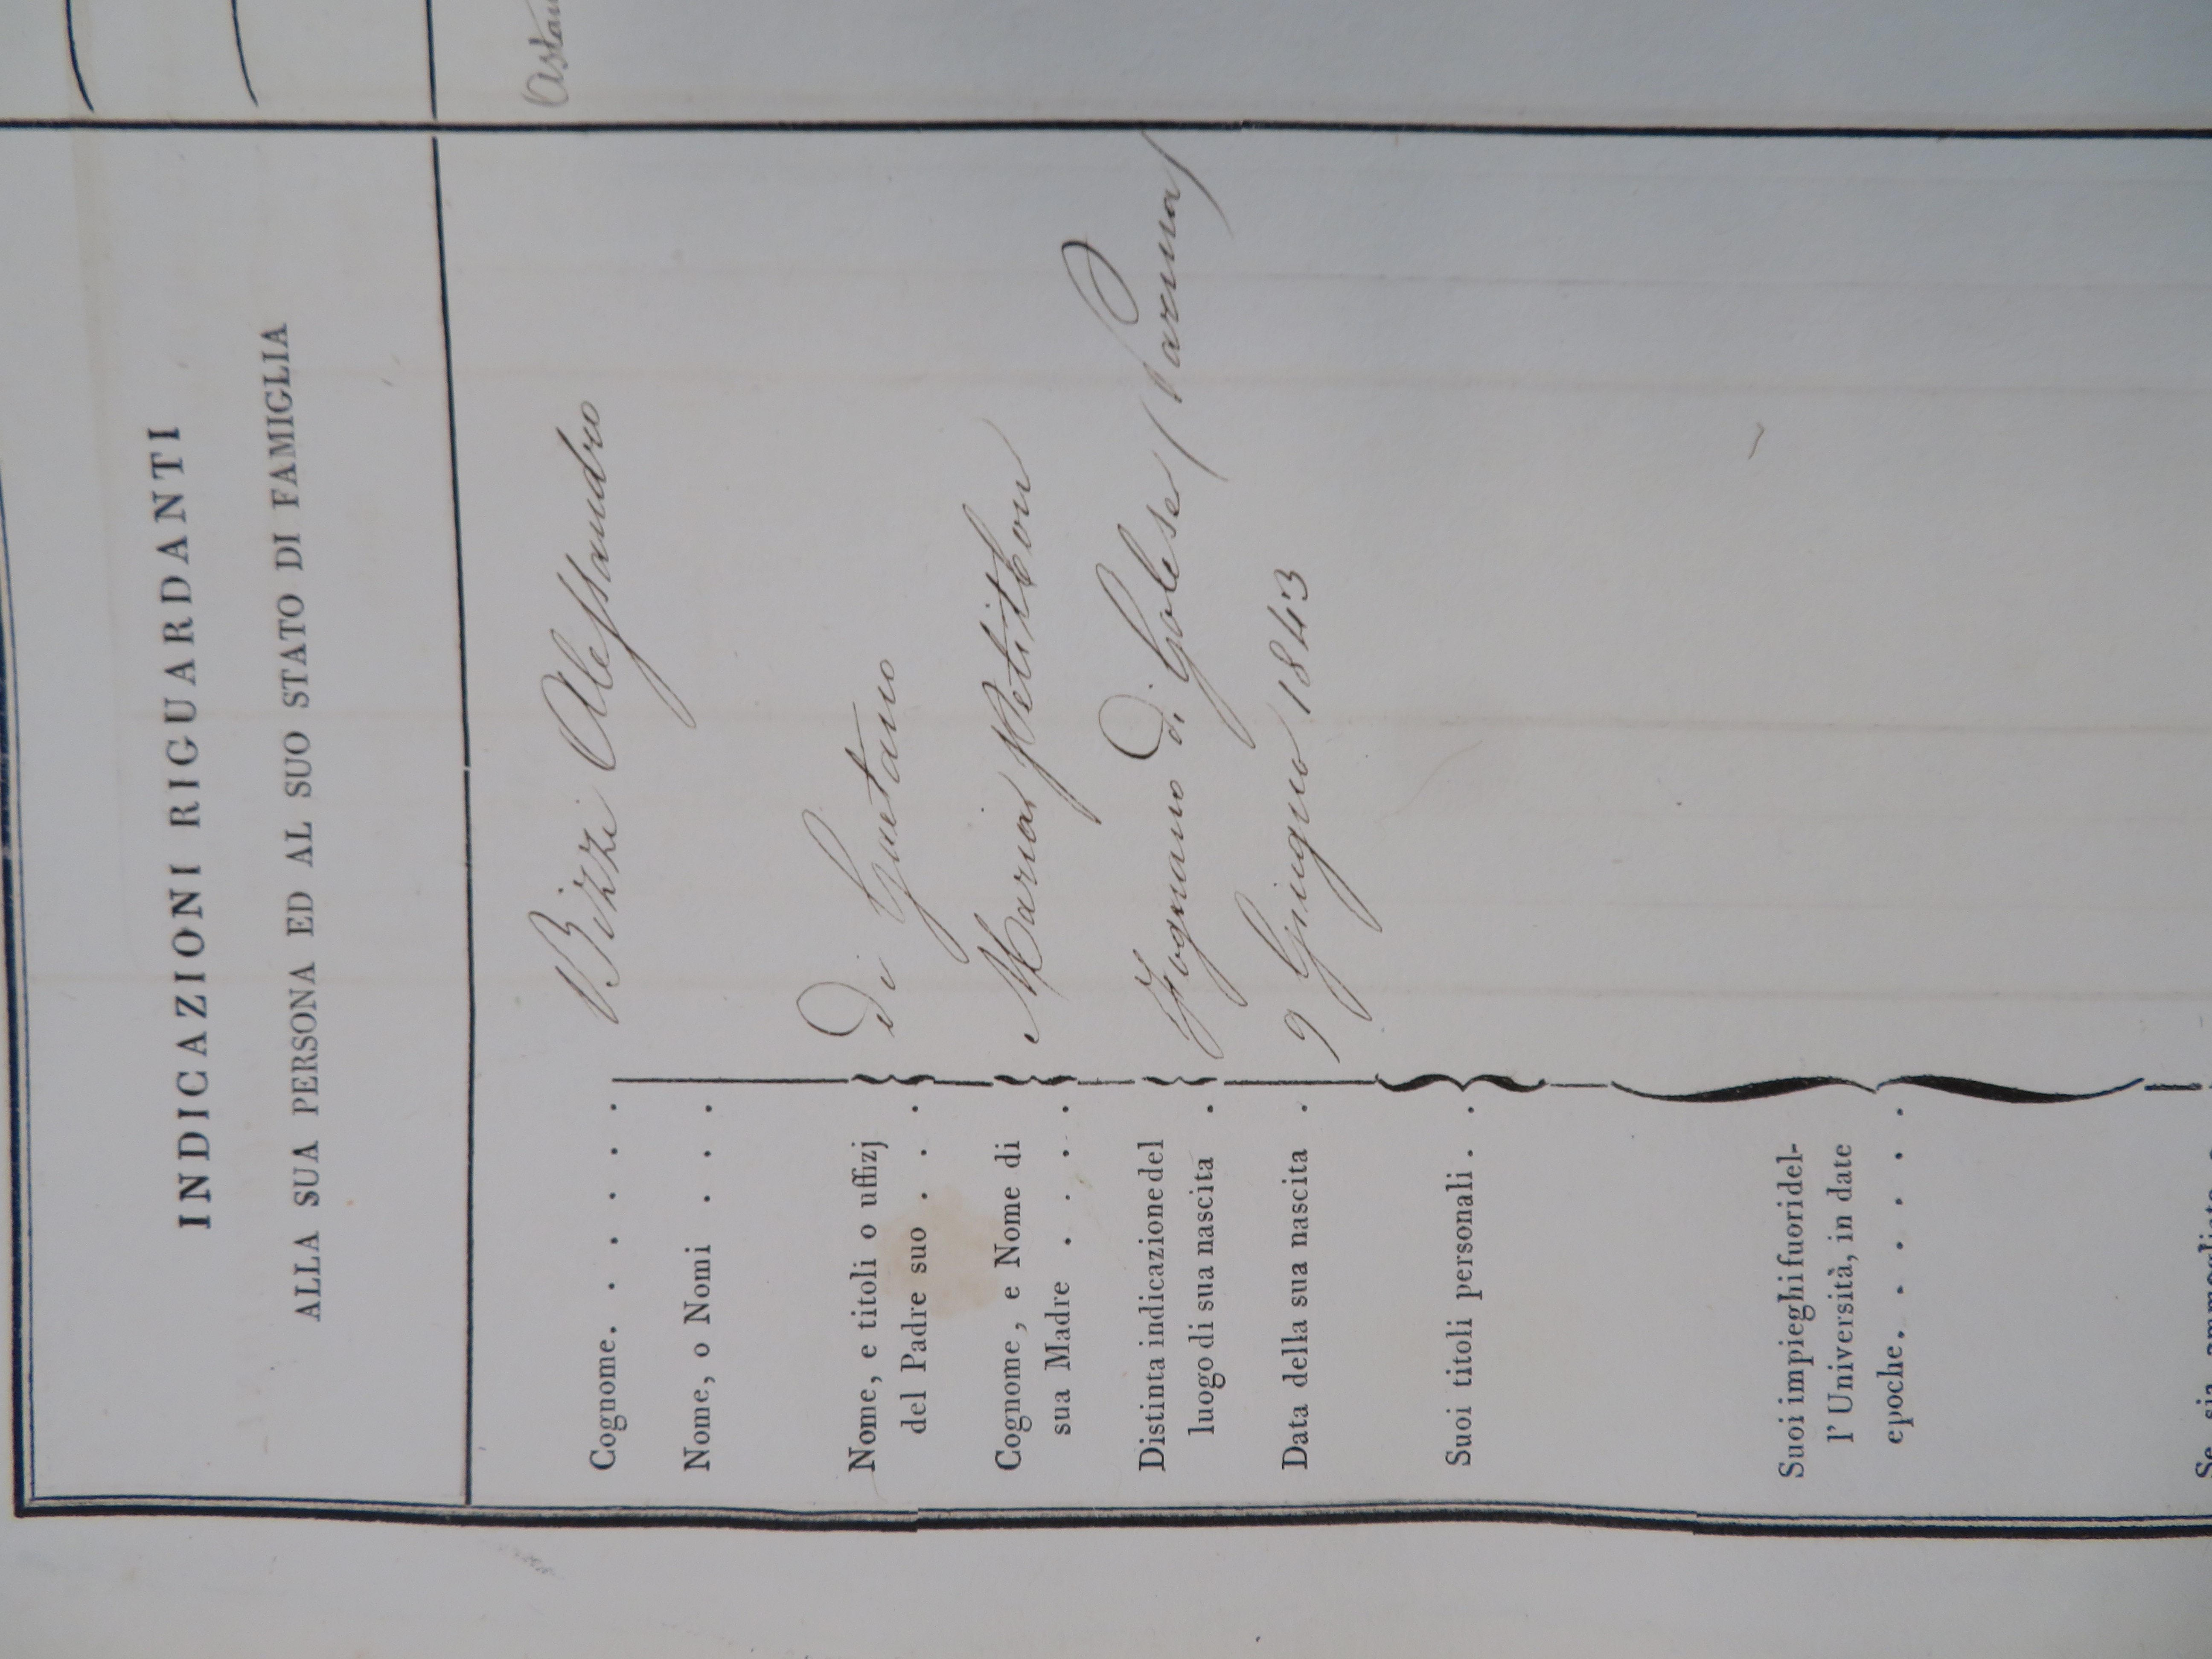 INDICAZIONI RIGUARDANTI
ALLA SUA PERSONA ED AL SUO STATO DI FAMIGLIA
Cognome. . . . . . Bizzi Alessandro
Nome, o Nomi . . . .
Nome, e titoli o uffizj
del Padre suo . . . . Di Gaetano
Cognome, e Nome di
sua Madre . . . . Maria Petitbon
Distinta indicazione del
luogo di sua nascita . Fognano di Golese (Parma)
Data della sua nascita . 9 Giugno 1843
Suoi titoli personali . .
Suoi impieghi fuori del-
l' Università, in date
epoche. . . . . . .